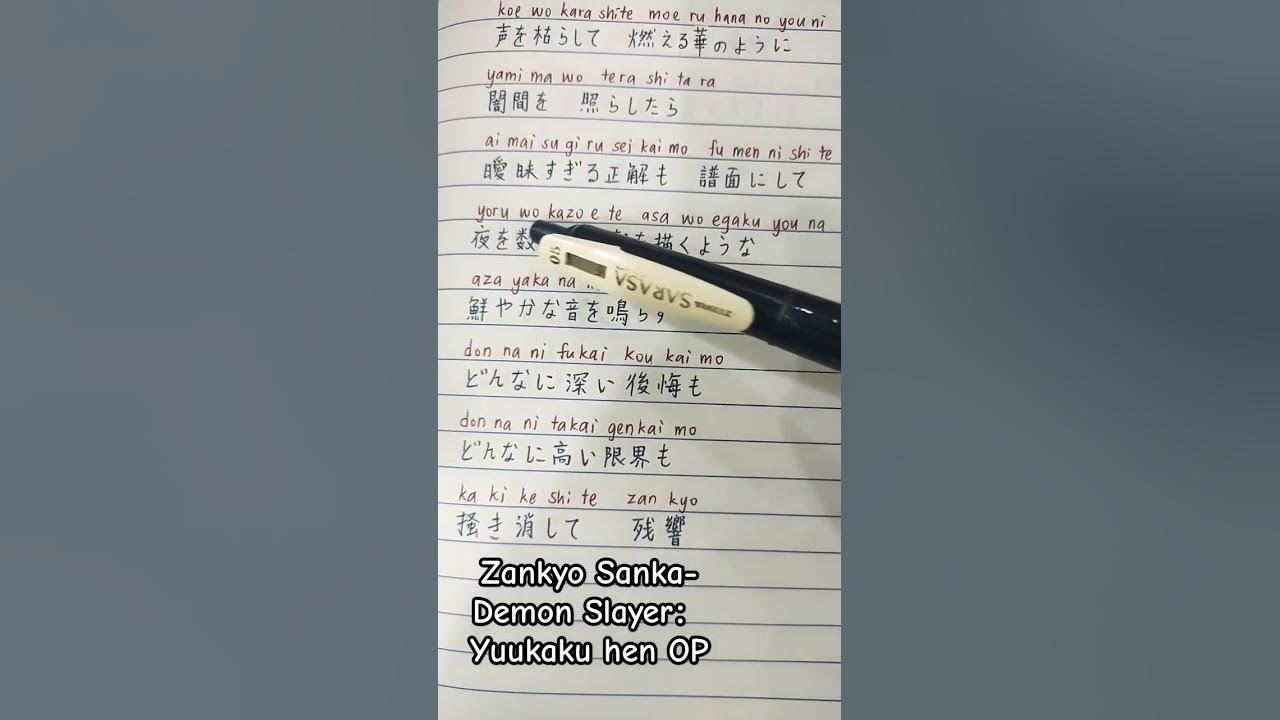 koe wo kara shite moe ru hana no you ni
声を枯らして 燃える華のように
yami ma wo tera shi ta ra
闇間を 照らしたら
ai mai su gi ru sei kai mo fu men ni shi te
曖昧すぎる正解も 譜面にして
yoru wo kazo e te asa wo egaku you na
夜を数 を描くような
aza yaka na
鮮やかな音を鳴らす
don na ni fukai kou kai mo
どんなに深い後悔も
don na ni takai genkai mo
どんなに高い限界も
ka ki ke shi te zan kyo
掻き消して 残響
SARASA
Zankyo Sanka-
Demon Slayer:
Yuukaku hen OP